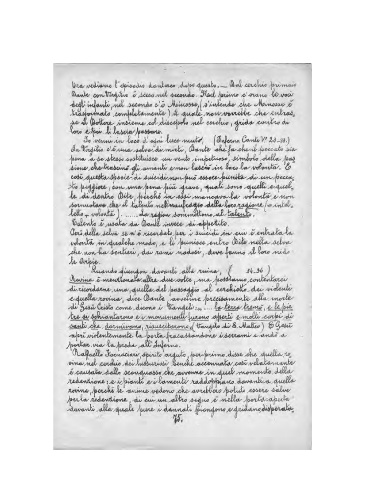 Ora vediamo l'episodio dantesco: dopo questo,.... Dal cerchio primaio
Dante con Virgilio è sceso nel secondo. Nel primo v'erano le voci
degli infanti, nel secondo c'è Minosse, s'intende che Minosse è
trasformato completamente) il quale non vorrebbe che entras-
se il Dottore insieme col discepolo nel cerchio, grida contro di
loro e poi li lascia passare.
Io venni in loco d'ogni luce muto, (Inferno Canto V° 28.29.)
In Virgilio c'è una selva di mirti, Dante che fa che il peccato sia
pena a se stesso sostituisce un vento impetuoso, simbolo della pas-
sione, che trascina gli amanti come
così questa specie di suicidi non può essere punita da un pecca-
to peggiore, con una pena più grave, quali sono quelle a quel-
le da dentro Dite, perchè in essi mancava la volontà e non
.....la ragion sommettono al talento,
Talento è usata da Dante invece di appetito.
Così della selva se n'è ricordato per i suicidi in cui è entrata la
volontà in qualche modo, e li punisce entro Dite nella selva
che non ha sentieri, dai rami nodosi, dove fanno il loro nido
le Arpie.
Quando giungon davanti alla ruina, ( 34.36)
Rovina è menzionata altre due volte, ma possiamo contentarci
di ricordarne una, quella del passaggio al cerchietto dei violenti
e quella rovina, dice Dante avvenne precisamente alla morte
di Gesù Cristo come dicono i Vangeli:.... la terra tremò, e le pie
tre si schiantarono e i monumenti furono aperti e molti corpi di
santi che dormivano, risuscitarono. (Vangelo di S. Matteo) E Gesù
aprì violentemente la porta fracassandone i serrami e andò a
portar via la preda all'Inferno.
Raffaello Fornaciari spirito acuto, per primo disse che quella ro-
vina nel cerchio dei lussuriosi benchè accennata così velatamente
è causata dallo sconquasso che avvenne in quel momento della
redenzione, e i pianti e i lamenti raddoppiano davanti a quella
rovina, perchè le anime vedono che avrebber potuto essere salve
per la redenzione, di cui un altro segno è nella porta aperta
davanti alla quale pure i dannati piangono e gridano disperata-
75.